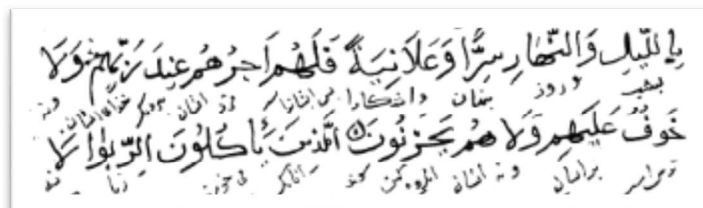 بِالَّيْلِ وَالنَّهَارِ سِرًّا وَعَلَانِيَةً فَلَهُمْ اَجْرُهُمْ عِنْدَ رَبِّهِمْ وَلَا
بشب و روز پنهان واشكارا ایشان مزد ایشان نزدیک ونه
خَوْفٌ عَلَيْهِمْ وَلَا هُمْ يَحْزَنُونَ اَلَّذِينَ يَأْكُلُونَ الرِّبٰوا لَا
ترس بر ایشان ونه ایشان آنانكه می خورند ربا نه